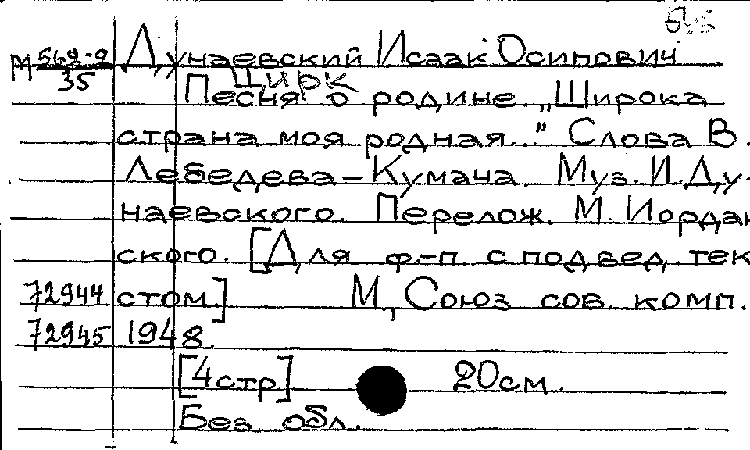 М 569-9/35 Дунаевский Исаак Осипович
Цирк
Песня о родине. „Широка
страна моя родная..." Слова В.
Лебедева-Кумача. Муз. И. Ду-
наевского. Перелож. М. Иордан
ского. [Для ф.-п. с подвед. тек
72944 стом] М., Союз сов. комп.
72945 1948.
[4стр] 20см.
Без обл.